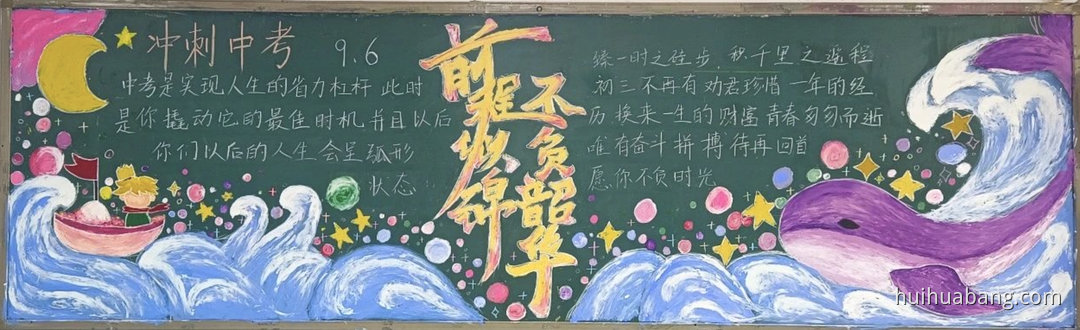 冲刺中考 9.6
中考是实现人生的省力杠杆 此时
是你撬动它的最佳时机 并且以后
你们以后的人生会呈弧形
状态
前程似锦
不负韶华
一时之硅步,积千里之远程
初三不再有 劝君珍惜 一年的经
历 换来一生的财富 青春匆匆而逝
唯有奋斗拼搏 待再回首
愿你不负时光
huihuabang.com